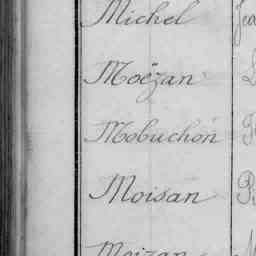 Michel
Moëzan
Mobuchon
Moisan
Moizan